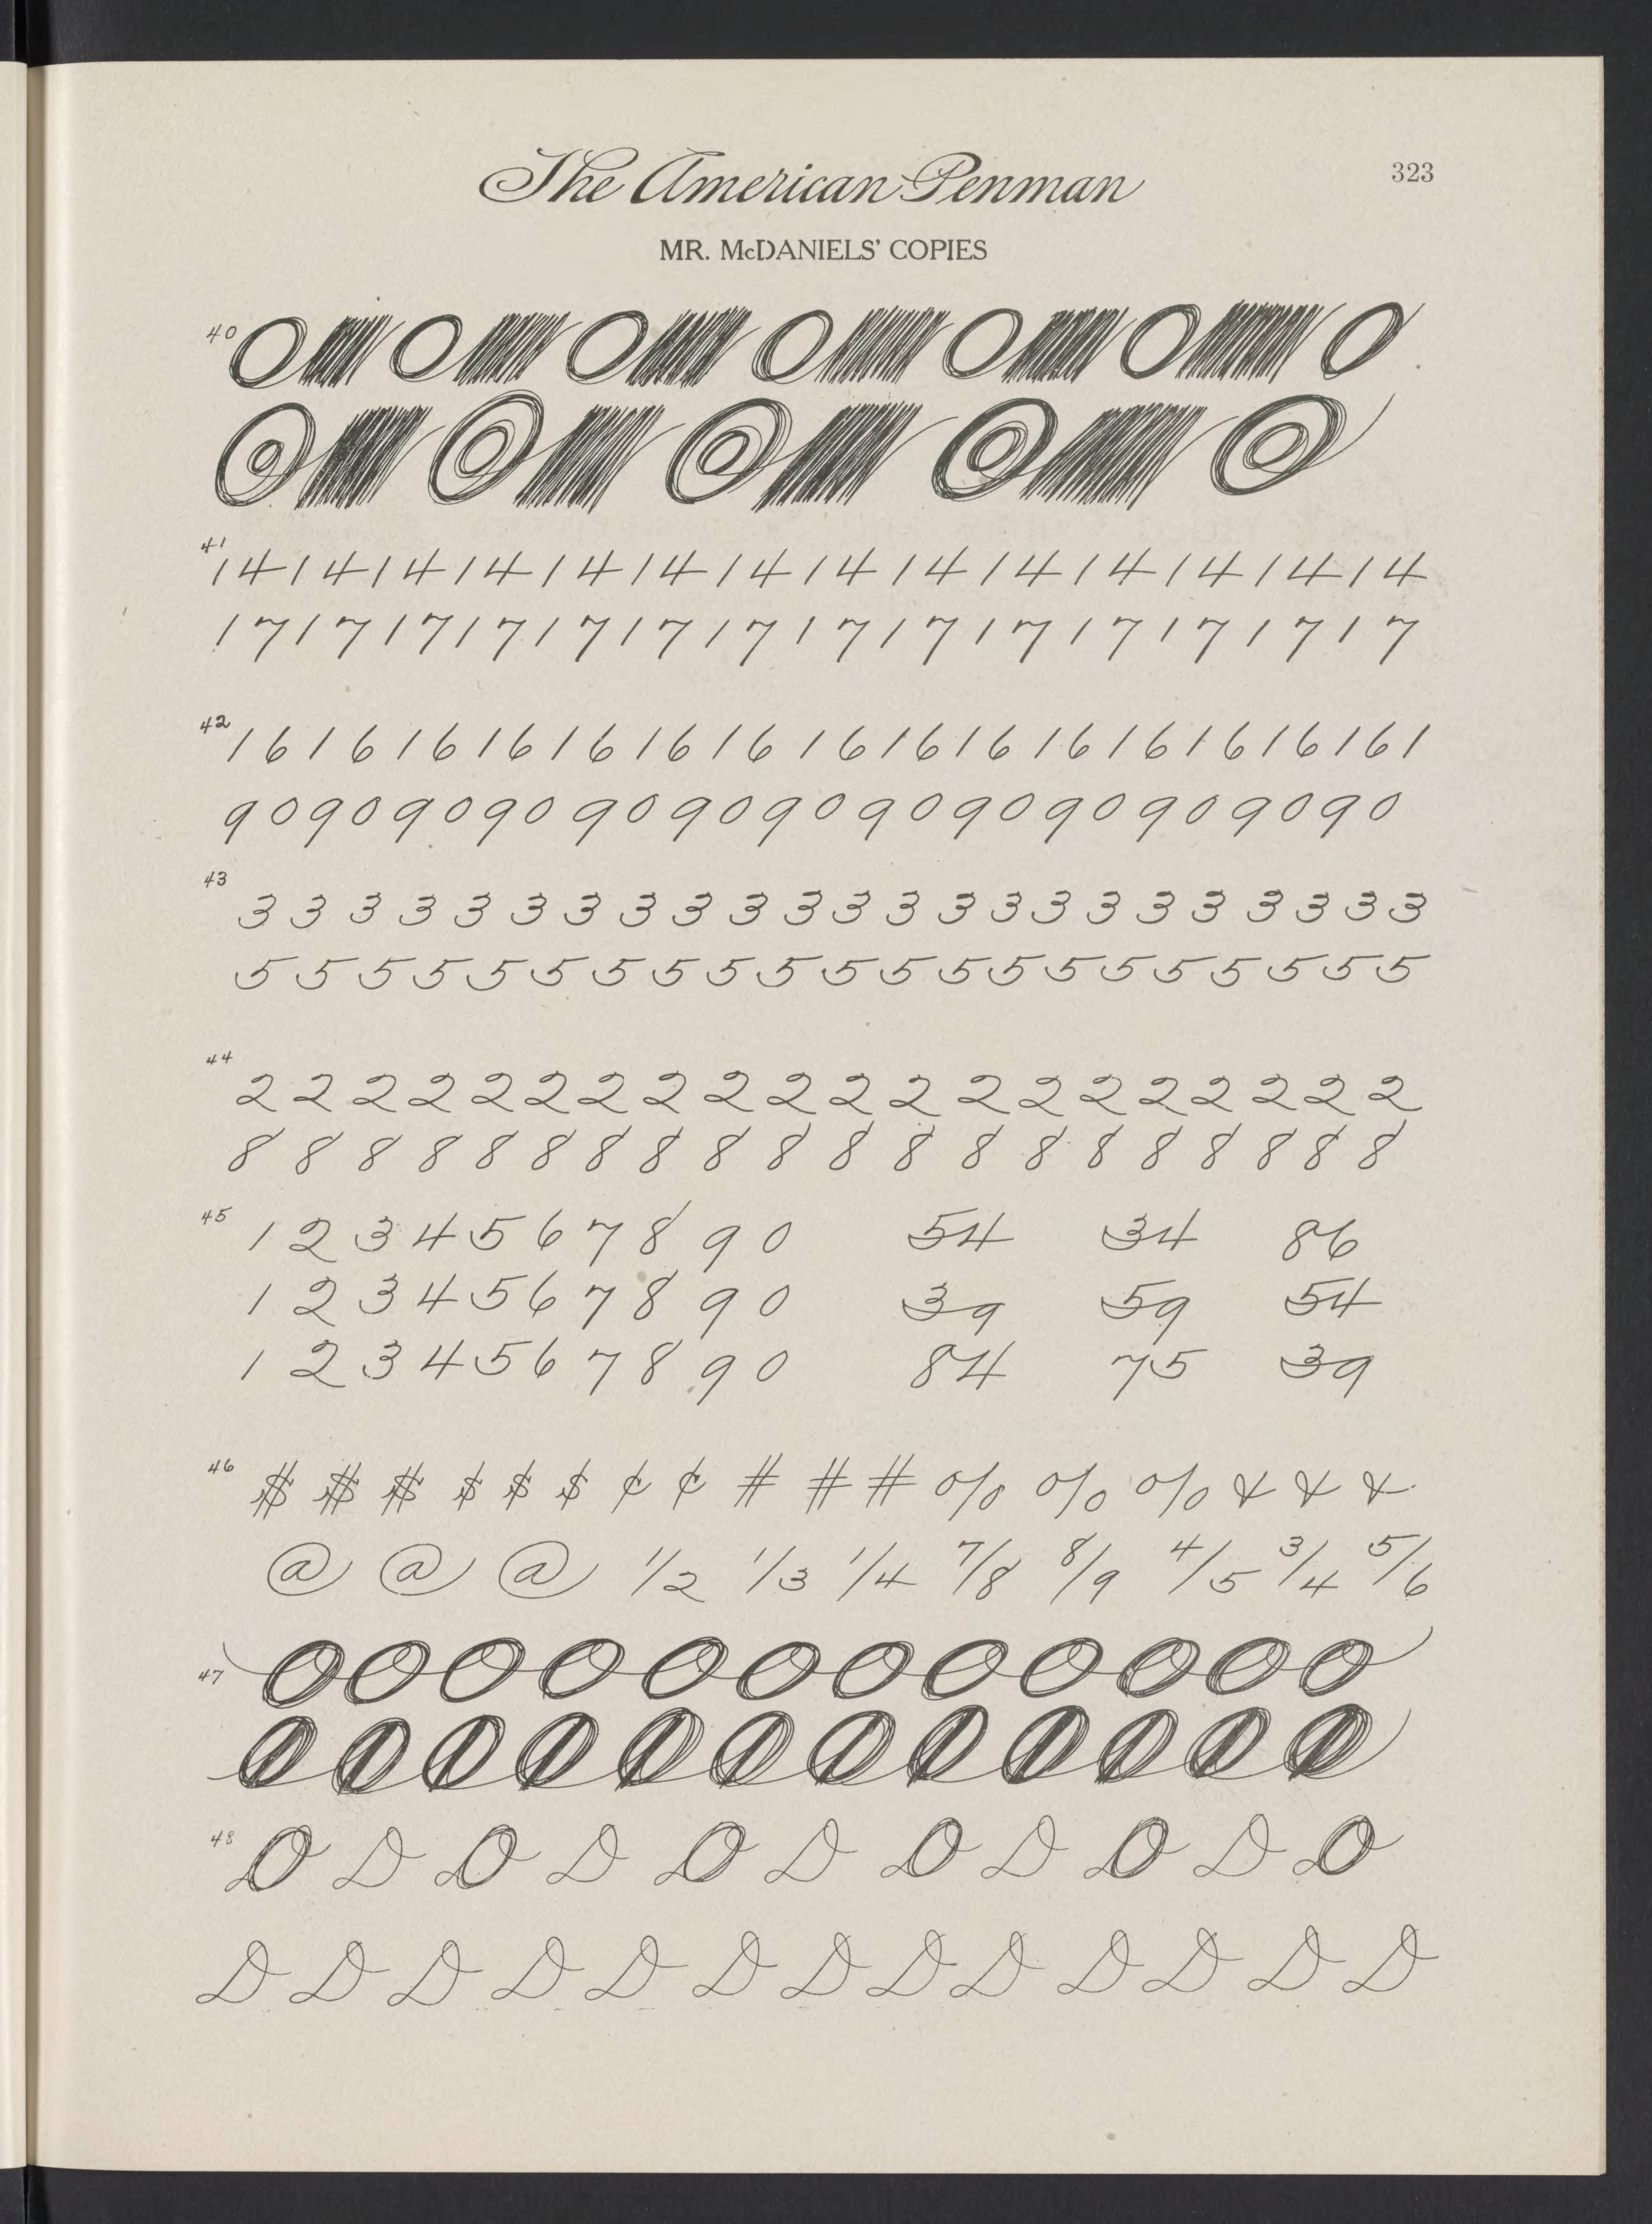 The American Penman
323
MR. McDANIELS' COPIES
40 O O O O O O O
O O O O O
41 1 4 1 4 1 4 1 4 1 4 1 4 1 4 1 4 1 4 1 4 1 4 1 4 1 4 1 4
1 7 1 7 1 7 1 7 1 7 1 7 1 7 1 7 1 7 1 7 1 7 1 7 1 7 1 7
42 1 6 1 6 1 6 1 6 1 6 1 6 1 6 1 6 1 6 1 6 1 6 1 6 1 6 1 6 1 6 1
9 0 9 0 9 0 9 0 9 0 9 0 9 0 9 0 9 0 9 0 9 0 9 0 9 0
43 3 3 3 3 3 3 3 3 3 3 3 3 3 3 3 3 3 3 3 3 3 3 3
5 5 5 5 5 5 5 5 5 5 5 5 5 5 5 5 5 5 5 5 5
44 2 2 2 2 2 2 2 2 2 2 2 2 2 2 2 2 2 2 2 2
8 8 8 8 8 8 8 8 8 8 8 8 8 8 8 8 8 8 8 8
45 1 2 3 4 5 6 7 8 9 0 54 34 86
1 2 3 4 5 6 7 8 9 0 39 59 54
1 2 3 4 5 6 7 8 9 0 84 75 39
46 $ $ $ $ $ $ ¢ ¢ # # # % % % & & &
@ @ @ 1/2 1/3 1/4 7/8 8/9 4/5 3/4 5/6
47 O O O O O O O O O O O O
O O O O O O O O O O O O
48 O D O D O D O D O D O
D D D D D D D D D D D D D